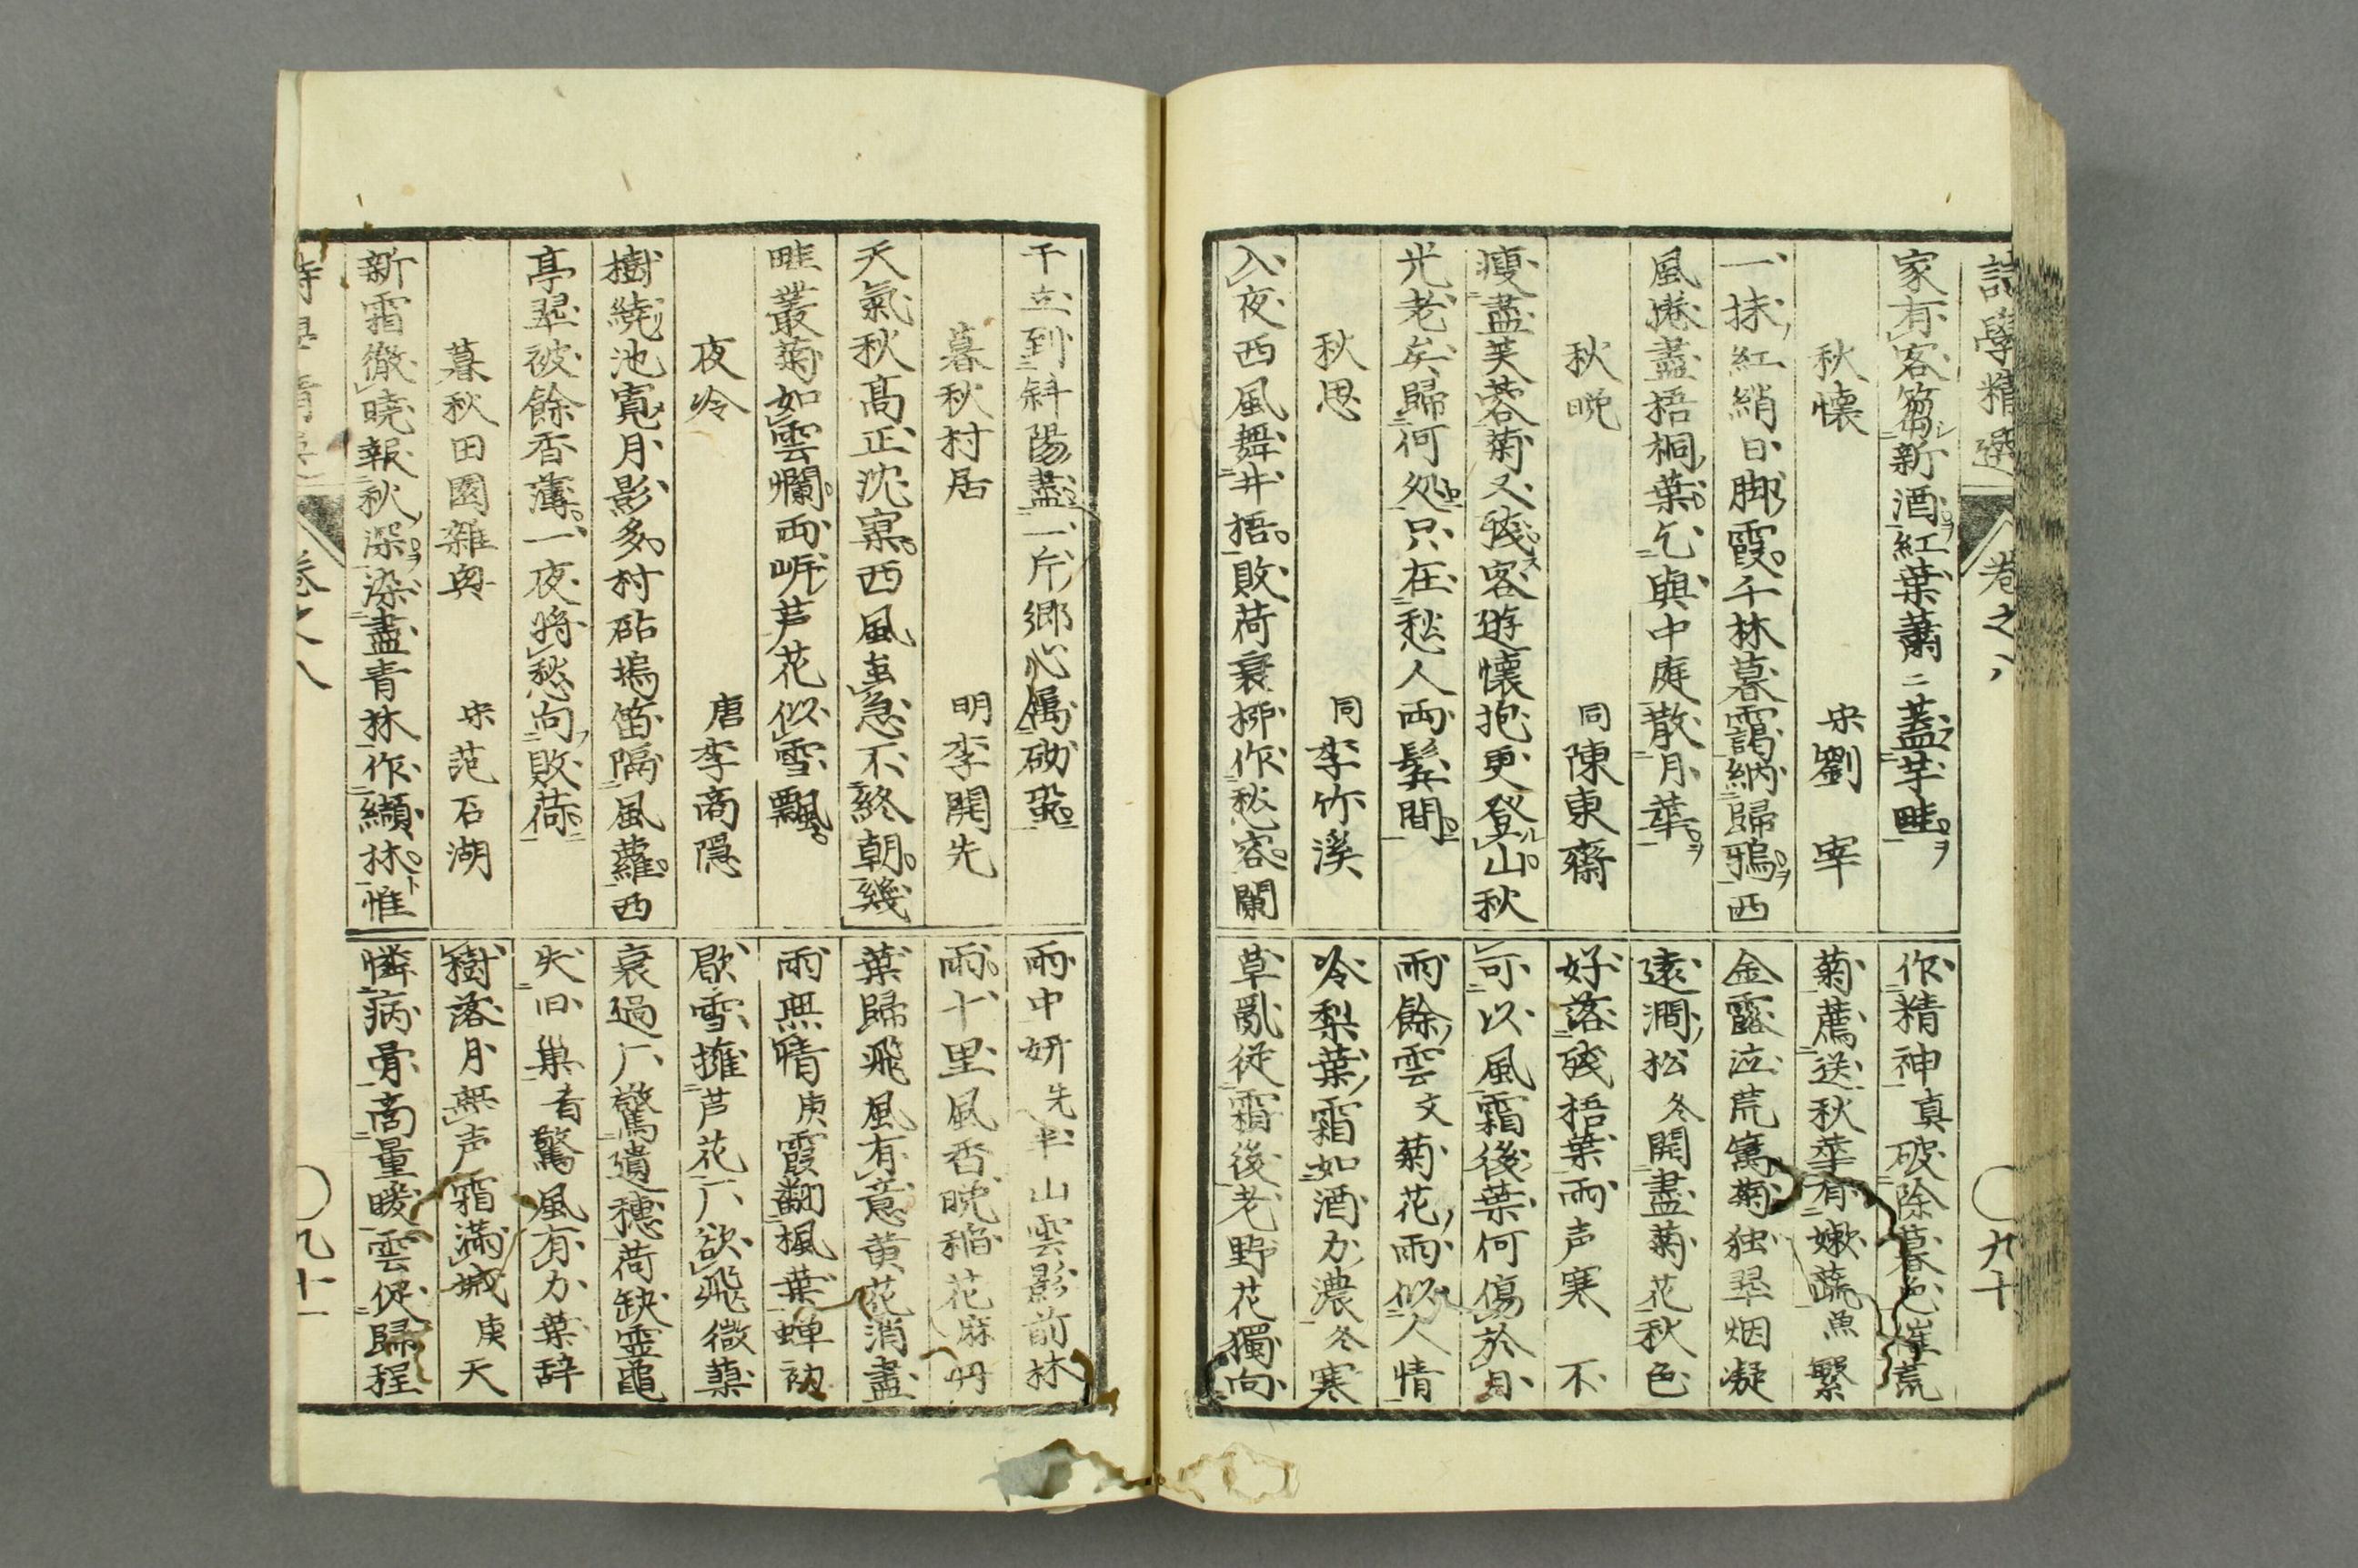 詩學精選 卷之八 九十
家有客篘新酒紅葉蕭ニ蓋芋畦
秋懷 宋劉 宰
一抹紅綃日脚霞千林暮靄納歸鴉西
風捲盡梧桐葉乞與中庭散月華
秋晩 同陳東齋
瘦盡芙蓉菊又殘客遊懷抱更登山秋
光老矣歸何処只在愁人両鬂間
秋思 同李竹溪
入夜西風舞井梧敗荷衰柳作愁容闌
作精神真破除暮色催荒
菊薦送秋華有嫩蔬魚繫
金露泣荒籬菊独翠烟凝
遠澗松冬開盡菊花秋色
好落殘梧葉雨声寒 不
可以風霜後葉何傷於月
雨餘雲文菊花雨似人情
冷梨葉霜如酒力濃冬寒
草亂従霜後老野花獨向
干立到斜陽盡一片郷心属砌蛩
暮秋村居 明李開先
天氣秋高正沈寥西風尽急不終朝幾
畦叢菊如雲爛両岍芦花似雪飄
夜冷 唐李商隠
樹繞池寛月影多村砧塢笛隔風蘿西
亭翠被餘香薄一夜將愁向敗荷
暮秋田園雜興 宋范石湖
新霜徹曉報秋深染盡青林作纈林惟
雨中妍先半山雲影前林
雨十里風香晩稲花麻丹
葉歸飛風有意黄花消盡
雨無晴庚霞翻楓葉蝉初
歇雪擁芦花厂欲飛微葉
衰過厂驚遺穗荷缺霊亀
失旧巣看驚風有力葉辞
樹落月無声霜滿城庚天
憐病骨商量暖雲促歸程
卷之八 九十一